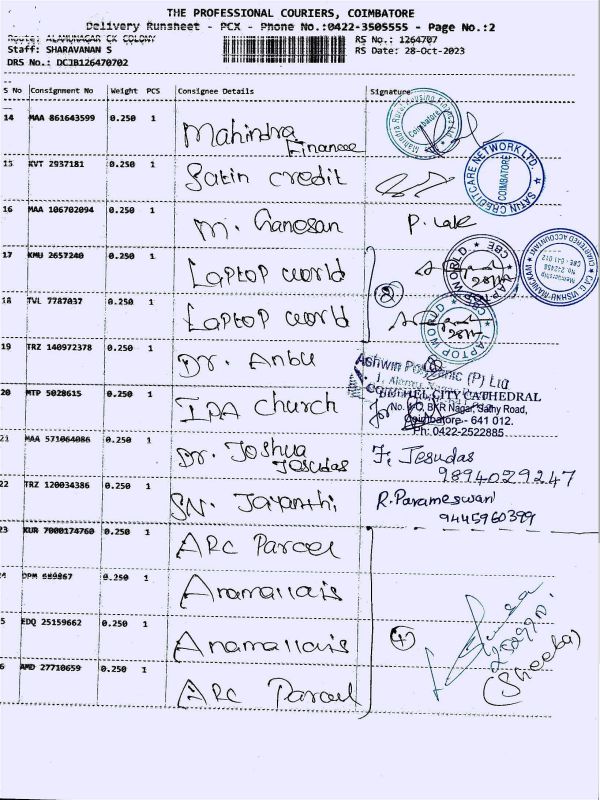 THE PROFESSIONAL COURIERS, COIMBATORE
Delivery Runsheet - PCX - Phone No.:0422-3505555 - Page No.:2
Route: ALAMUNAGAR CK COLONY
RS No.: 1264707
Staff: SHARAVANAN S
RS Date: 28-Oct-2023
DRS No.: DCJB126470702
S No Consignment No Weight PCS Consignee Details Signature
14 MAA 861643599 0.250 1 Mahindra Finance
Mahindra Rural Housing Finance Ltd. Coimbatore
15 KVT 2937181 0.250 1 Satin credit
SATIN CREDITCARE NETWORK LTD. COIMBATORE
16 MAA 106702094 0.250 1 M. Ganesan P. Lale
17 KMU 2657240 0.250 1 Laptop world
LAPTOP WORLD CBE
CHARTERED ACCOUNTANT
2
18 TVL 7787037 0.250 1 Laptop world
LAPTOP WORLD CBE
19 TRZ 140972378 0.250 1 Dr. Anbu
(P) Ltd
20 MTP 5028615 0.250 1 IPA church
CITY CATHEDRAL
No. 4/C, BKR Nagar, Sathy Road,
Coimbatore - 641 012.
Ph: 0422-2522885
for
21 MAA 571064086 0.250 1 Dr. Joshua Jesudas
F. Jesudas
9894029247
22 TRZ 120034386 0.250 1 SN. Jayanthi
R. Parameswari
9445960399
23 KUR 7000174760 0.250 1 ARC Parcel
0.250 1 Anamallais
EDQ 25159662 0.250 1 Anamallais
4
(Sheeba)
AMD 27710659 0.250 1 ARC Parcel